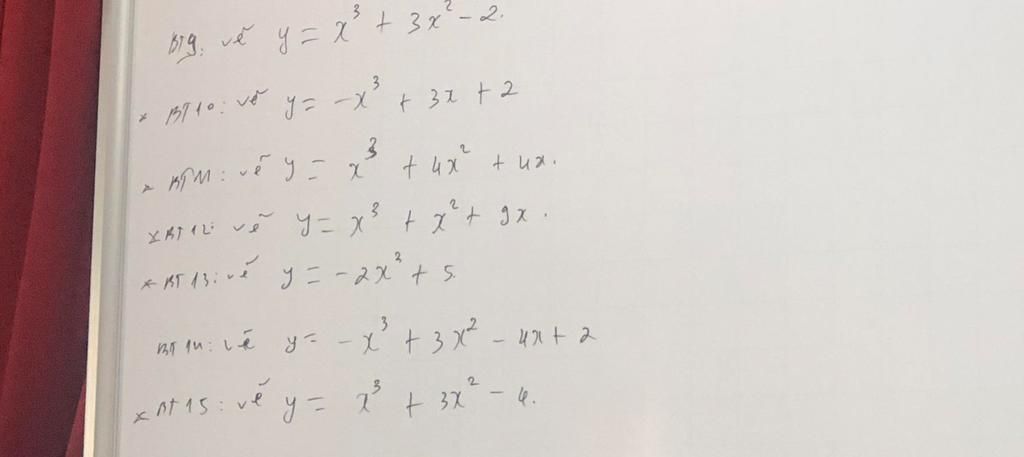 BT9: vẽ y = x³ + 3x² - 2.
* BT10: vẽ y = -x³ + 3x + 2
* BT11: vẽ y = x³ + 4x² + 4x.
* BT12: vẽ y = x³ + x² + 9x.
* BT13: vẽ y = -2x³ + 5
BT14: vẽ y = -x³ + 3x² - 4x + 2
* BT15: vẽ y = x³ + 3x² - 4.